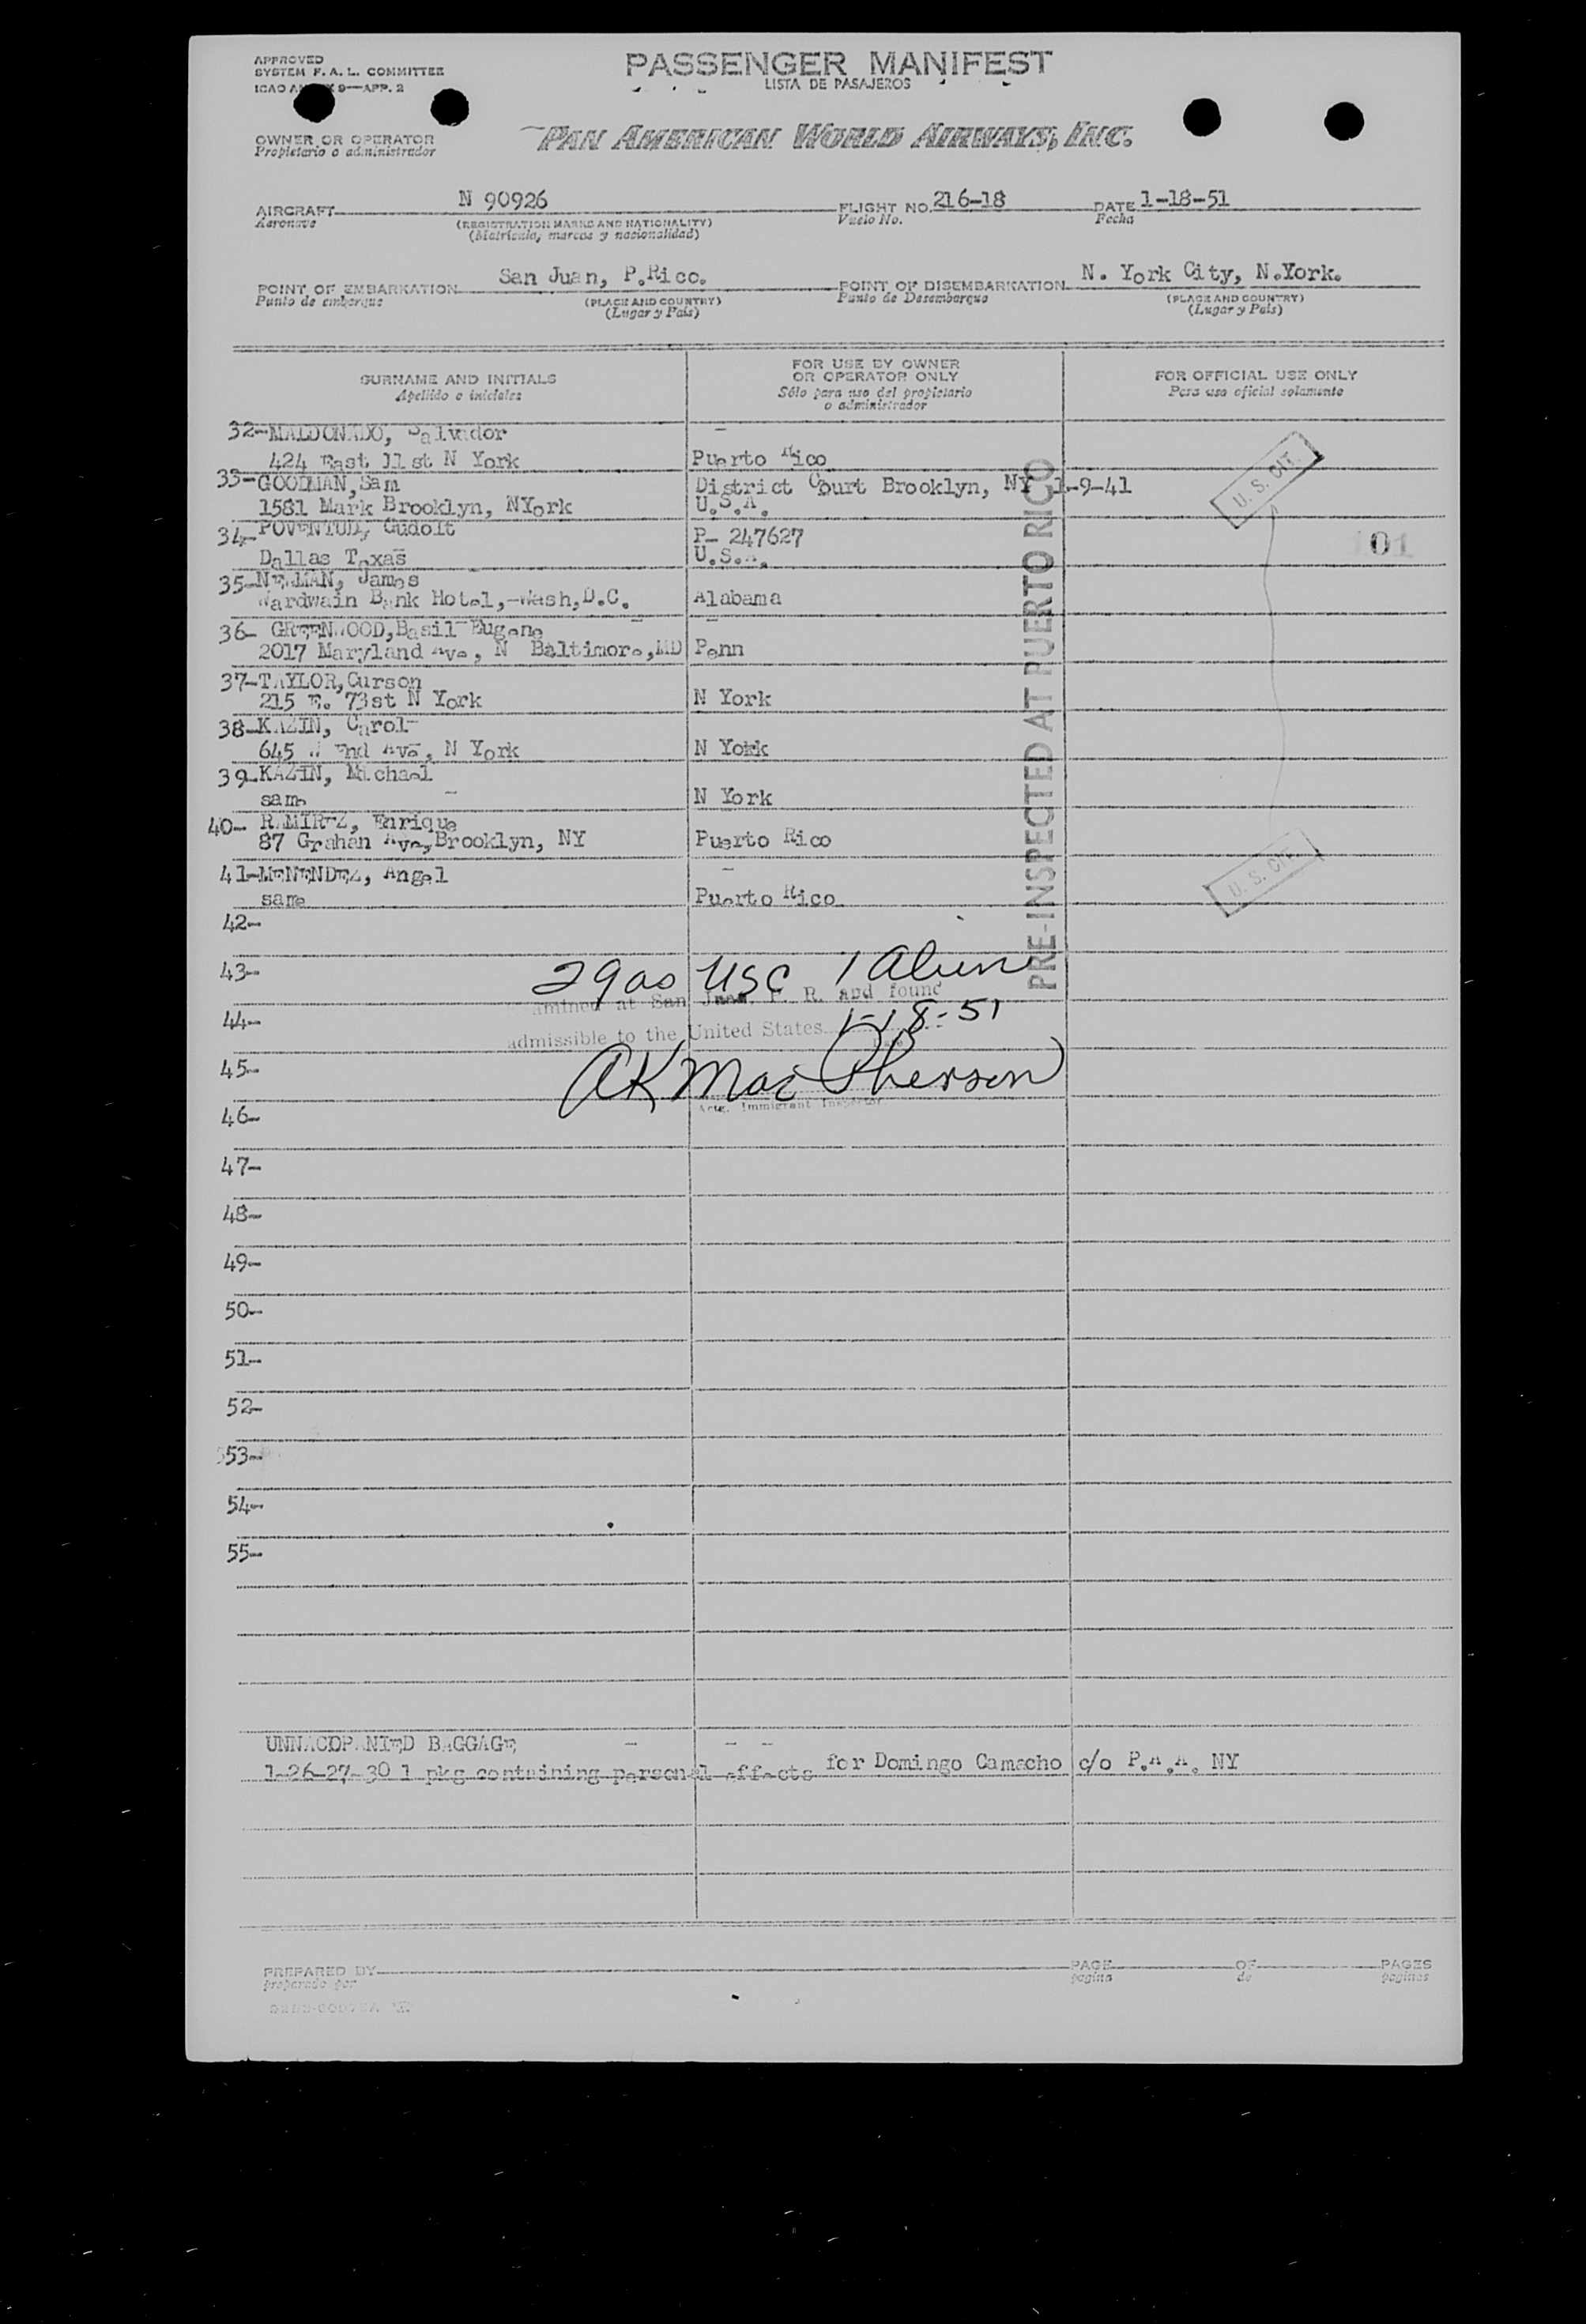 APPROVED
SYSTEM F. A. L. COMMITTEE
ICAO ANNEX 9—APP. 2
PASSENGER MANIFEST
LISTA DE PASAJEROS
OWNER OR OPERATOR
Propietario o administrador
PAN AMERICAN WORLD AIRWAYS, INC.
AIRCRAFT N 90926 FLIGHT NO. 216-18 DATE 1-18-51
Aeronave (REGISTRATION MARKS AND NATIONALITY) Vuelo No. Fecha
(Matrícula, marcas y nacionalidad)
POINT OF EMBARKATION San Juan, P.Rico. POINT OF DISEMBARKATION N. York City, N.York.
Punto de embarque (PLACE AND COUNTRY) Punto de Desembarque (PLACE AND COUNTRY)
(Lugar y País) (Lugar y País)
SURNAME AND INITIALS FOR USE BY OWNER OR OPERATOR ONLY FOR OFFICIAL USE ONLY
Apellido e iniciales Sólo para uso del propietario o administrador Para uso oficial solamente
32-MALDONADO, Salvador
424 East 11st N York Puerto Rico
33-GOODMAN, Sam District Court Brooklyn, NY 1-9-41
1581 Mark Brooklyn, NYork U.S.A.
34-POVENTUD, Gudolt P- 247627
Dallas Texas U.S.A.
35-NEWMAN, James
Wardwain Bank Hotel,-Wash,D.C. Alabama
36- GREENWOOD,Basil Eugene
2017 Maryland Ave, N Baltimore,MD Penn
37-TAYLOR,Curson
215 E. 73st N York N York
38-KAZIN, Carol
645 W End Ave, N York N York
39-KAZIN, Michael
same N York
40- RAMIREZ, Enrique
87 Grahan Ave,Brooklyn, NY Puerto Rico
41-MENENDEZ, Angel
same Puerto Rico
U. S. CIT.
101
U. S. CIT.
PRE-INSPECTED AT PUERTO RICO
42-
43-
29 as USC 1 Alien
amined at San Juan, P. R. and found
44-
admissible to the United States 1-18-51
45-
AK MacPherson
Actg. Immigrant Inspector
46-
47-
48-
49-
50-
51-
52-
53-
54-
55-
UNNACOPANIED BAGGAGE
1-26-27-30 1 pkg containing personal effects for Domingo Camacho c/o P.A.A. NY
PREPARED BY PAGE OF PAGES
preparado por pagina de paginas